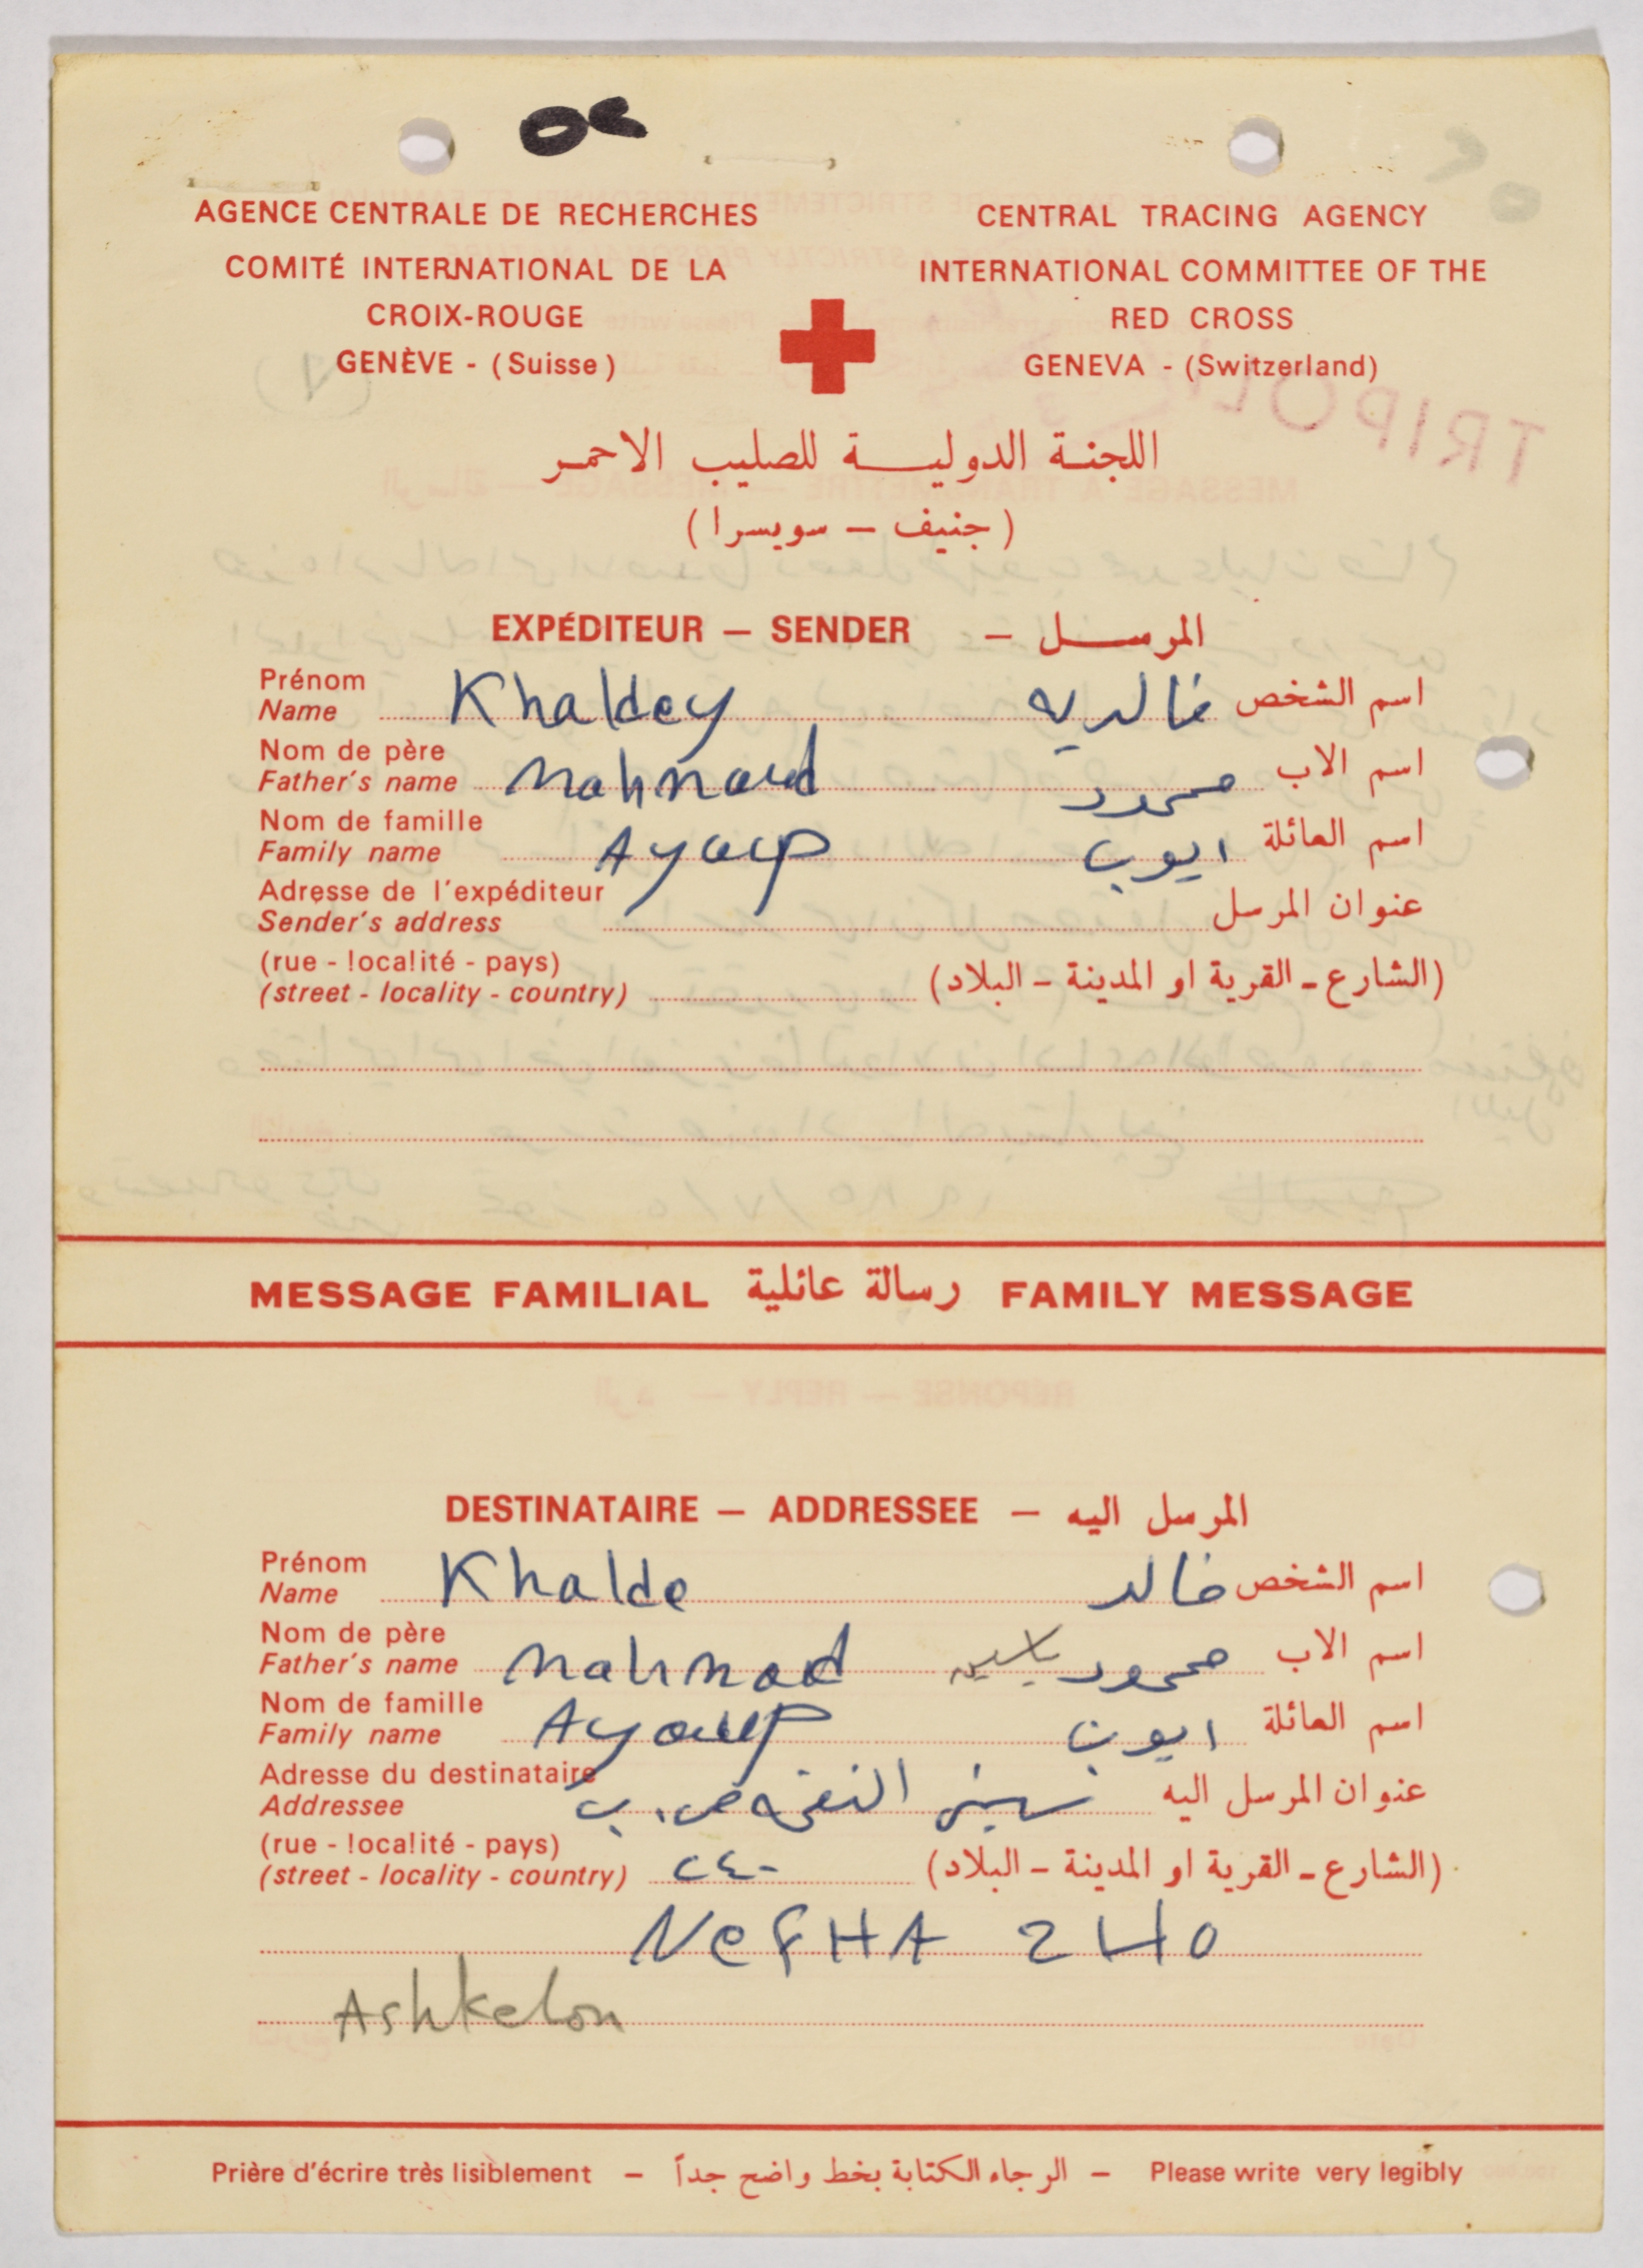 AGENCE CENTRALE DE RECHERCHES
COMITÉ INTERNATIONAL DE LA
CROIX-ROUGE
GENÈVE - (Suisse)
CENTRAL TRACING AGENCY
INTERNATIONAL COMMITTEE OF THE
RED CROSS
GENEVA - (Switzerland)
TRIPOLI
اللجنة الدولية للصليب الاحمر
(جنيف – سويسرا)
EXPÉDITEUR – SENDER – المرسل
Prénom
Name Khaldey خالديه اسم الشخص
Nom de père
Father's name Mahmoud محمود اسم الاب
Nom de famille
Family name Ayoup ايوب اسم العائلة
Adresse de l'expéditeur
Sender's address عنوان المرسل
(rue - localité - pays)
(street - locality - country) (الشارع - القرية او المدينة - البلاد)
MESSAGE FAMILIAL رسالة عائلية FAMILY MESSAGE
DESTINATAIRE – ADDRESSEE – المرسل اليه
Prénom
Name Khalde خالد اسم الشخص
Nom de père
Father's name Mahmod محمود ياسين اسم الاب
Nom de famille
Family name Ayoup ايوب اسم العائلة
Adresse du destinataire
Addressee عنوان المرسل اليه سجن النفحه ص.ب
(rue - localité - pays)
(street - locality - country) ٢٤٠ (الشارع - القرية او المدينة - البلاد)
NeFHA 240
Ashkelon
Prière d'écrire très lisiblement – الرجاء الكتابة بخط واضح جداً – Please write very legibly